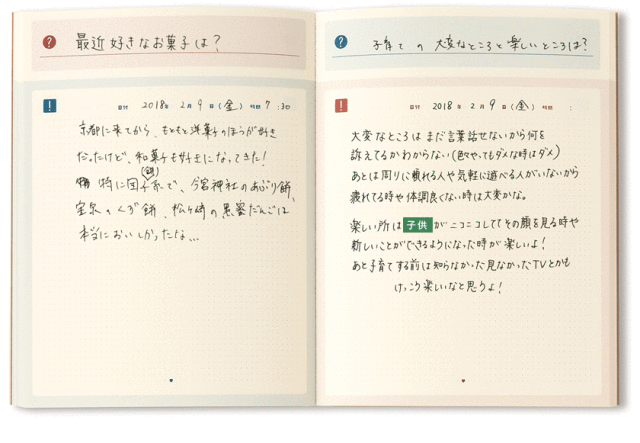 ? 最近好きなお菓子は?
! 日付 2018年 2月 9日(金) 時間 7:30
京都に来てから、もともと洋菓子のほうが好き
だったけど、和菓子も好きになってきた!
(餅)
特に団子系で、今宮神社のあぶり餅、
宝泉のくず餅、松ヶ崎の黒蜜だんごは
本当においしかったな...
? 子育ての大変なところと楽しいところは?
! 日付 2018年 2月 9日(金) 時間 :
大変なところはまだ言葉話せないから何を
訴えてるかわからない(色々やってもダメな時はダメ)
あとは周りに頼れる人や気軽に遊べる人がいないから
疲れてる時や体調良くない時は大変かな。
楽しい所は 子供 がニコニコしててその顔を見る時や
新しいことができるようになった時が楽しいよ!
あと子育てする前は知らなかった見なかったTVとかも
けっこう楽しいなと思うよ!